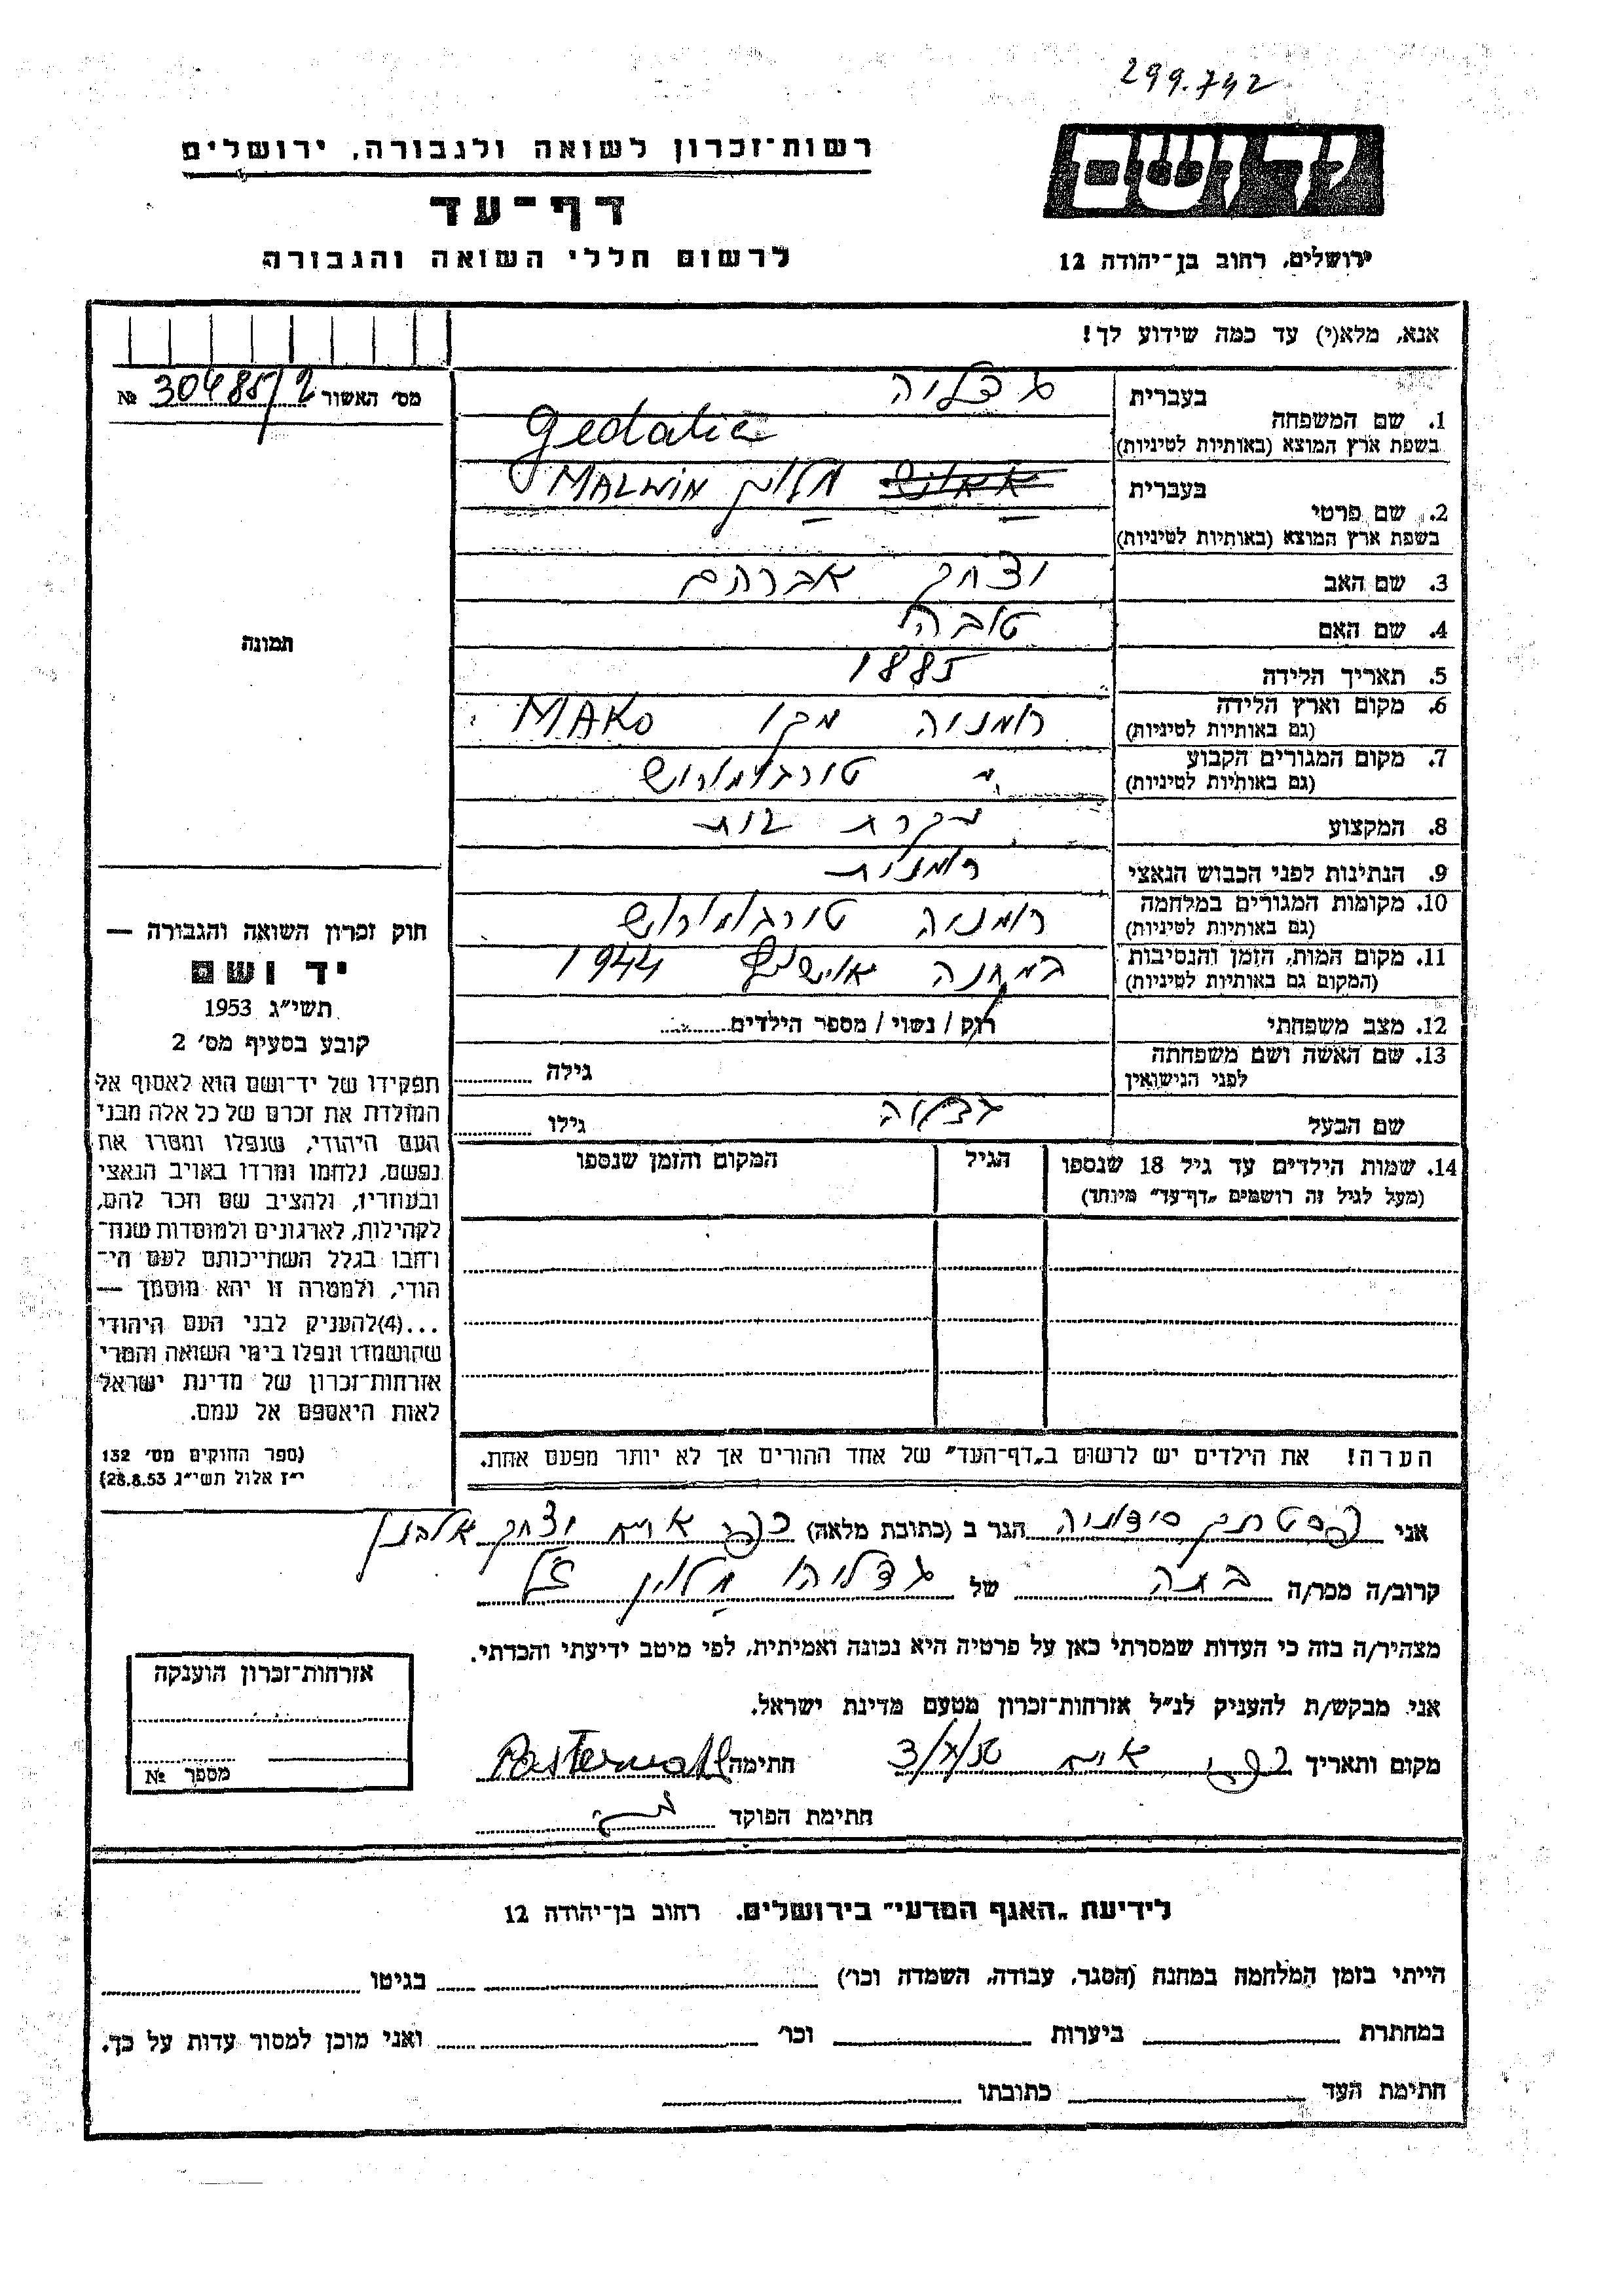 299.742
רשות־זכרון לשואה ולגבורה, ירושלים
דף־עד
לרשום חללי השואה והגבורה
יד ושם
ירושלים, רחוב בן־יהודה 12
אנא, מלא(י) עד כמה שידוע לך!
מס׳ האשור № 30485/2
בעברית גדליה
1. שם המשפחה
בשפת ארץ המוצא (באותיות לטיניות) Gedalie
בעברית מלוין MALWIN
2. שם פרטי
בשפת ארץ המוצא (באותיות לטיניות)
3. שם האב יצחק אברהם
4. שם האם טובה
5. תאריך הלידה 1885
6. מקום וארץ הלידה רומניה מקו MAKO
(גם באותיות לטיניות)
7. מקום המגורים הקבוע טורגומורוש
(גם באותיות לטיניות)
8. המקצוע עקרת בית
9. הנתינות לפני הכבוש הנאצי רומנית
10. מקומות המגורים במלחמה רומניה טורגומורוש
(גם באותיות לטיניות)
11. מקום המות, הזמן והנסיבות במחנה 1944
(המקום גם באותיות לטיניות)
12. מצב משפחתי רוק / נשוי / מספר הילדים
13. שם האשה ושם משפחתה
לפני הנישואין
גילה
שם הבעל גדליה גילו
14. שמות הילדים עד גיל 18 שנספו
(מעל לגיל זה רושמים „דף־עד״ מיוחד)
הגיל
המקום והזמן שנספו
הערה! את הילדים יש לרשום ב„דף־העד״ של אחד ההורים אך לא יותר מפעם אחת.
תמונה
חוק זכרון השואה והגבורה —
יד ושם
תשי״ג 1953
קובע בסעיף מס׳ 2
תפקידו של יד־ושם הוא לאסוף אל
המולדת את זכרם של כל אלה מבני
העם היהודי, שנפלו ומסרו את
נפשם, נלחמו ומרדו באויב הנאצי
ובעוזריו, ולהציב שם וזכר להם,
לקהילות, לארגונים ולמוסדות שנח־
רחבו בגלל השתייכותם לעם הי־
הודי, ולמטרה זו יהא מוסמך —
...(4)להעניק לבני העם היהודי
שהושמדו ונפלו בימי השואה והמרי
אזרחות־זכרון של מדינת ישראל
לאות היאספם אל עמם.
(ספר החוקים מס׳ 132
י״ז אלול תשי״ג 28.8.53)
אני פסטרנק סידוניה הגר ב (כתובת מלאה) יצחק
קרוב/ה מכר/ה בתה של גדליה מלוין ז״ל
מצהיר/ה בזה כי העדות שמסרתי כאן על פרטיה היא נכונה ואמיתית, לפי מיטב ידיעתי והכרתי.
אני מבקש/ת להעניק לנ״ל אזרחות־זכרון מטעם מדינת ישראל.
מקום ותאריך חתימה Pasternak
חתימת הפוקד
אזרחות־זכרון הוענקה
מספר №
לידיעת „האגף המדעי״ בירושלים, רחוב בן־יהודה 12
הייתי בזמן המלחמה במחנה (הסגר, עבודה, השמדה וכו׳) בגיטו
במחתרת ביערות וכו׳ ואני מוכן למסור עדות על כך.
חתימת העד כתובתו